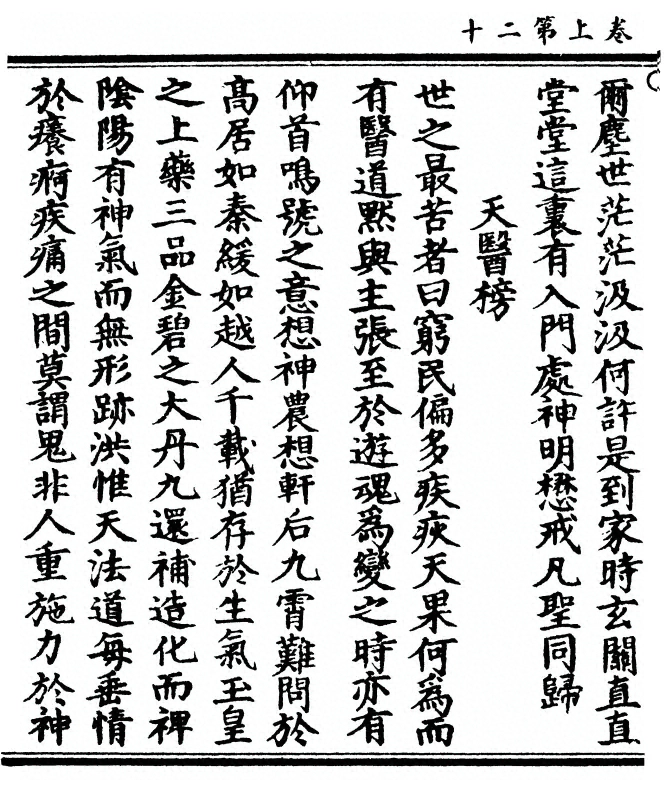 卷上第二十
爾塵世茫茫汲汲何許是到家時玄關直直
堂堂這裏有入門處神明懋戒凡聖同歸
天醫榜
世之最苦者曰窮民偏多疾疢天果何爲而
有醫道默與主張至於遊魂爲變之時亦有
仰首鳴號之意想神農想軒后九霄難問於
高居如秦緩如越人千載猶存於生氣玉皇
之上藥三品金碧之大丹九還補造化而裨
陰陽有神氣而無形跡洪惟天法道每垂情
於癢痾疾痛之間莫謂鬼非人重施力於神